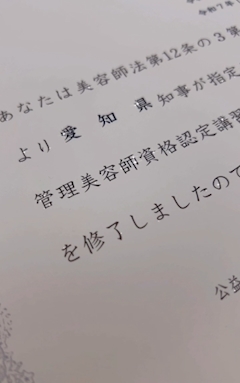 令和7年
あなたは美容師法第12条の3第
より愛知県知事が指定
管理美容師資格認定講習
を修了しましたので
公益